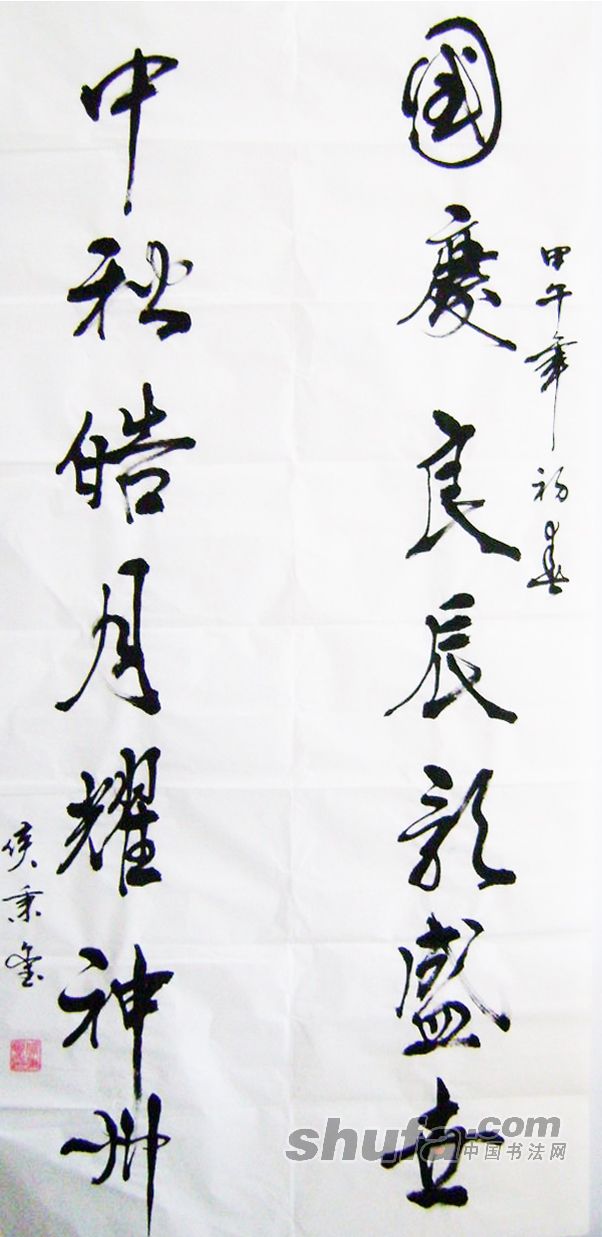 甲午年初春
國慶良辰歌盛世
中秋皓月耀神州
侯秉
shufa.com
中国书法网